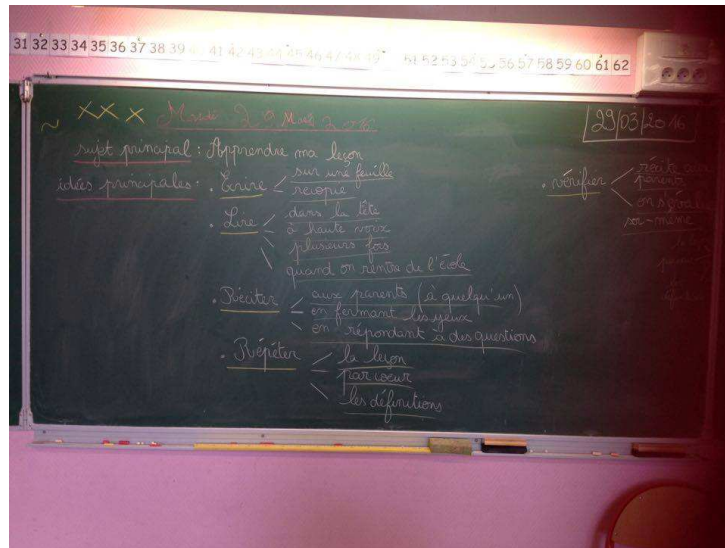 31 32 33 34 35 36 37 38 39 40 41 42 43 44 45 46 47 48 49 51 52 53 54 55 56 57 58 59 60 61 62
~ XX X Mardi 29 Mars 2016
29/03/2016
sujet principal : Apprendre ma leçon
idées principales : . Écrire sur une feuille
recopie
. Lire dans la tête
à haute voix
plusieurs fois
quand on rentre de l'école
. Réciter aux parents (à quelqu'un)
en fermant les yeux
en répondant à des questions
. Répéter la leçon
par coeur
les définitions
. vérifier récite aux
parents
on
soi-même